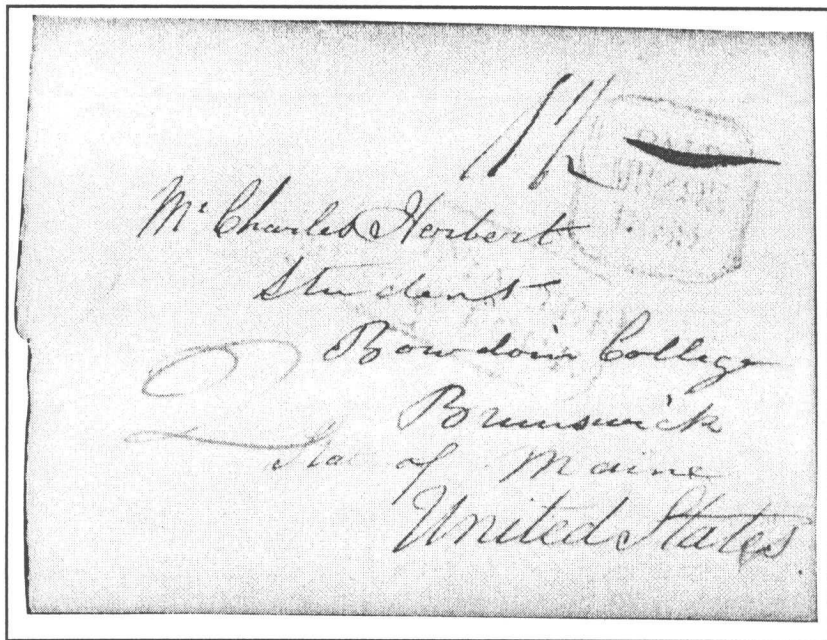 1/2
PAID
Mr. Charles Herbert
Student
Bowdoin College
Brunswick
State of Maine
United States.